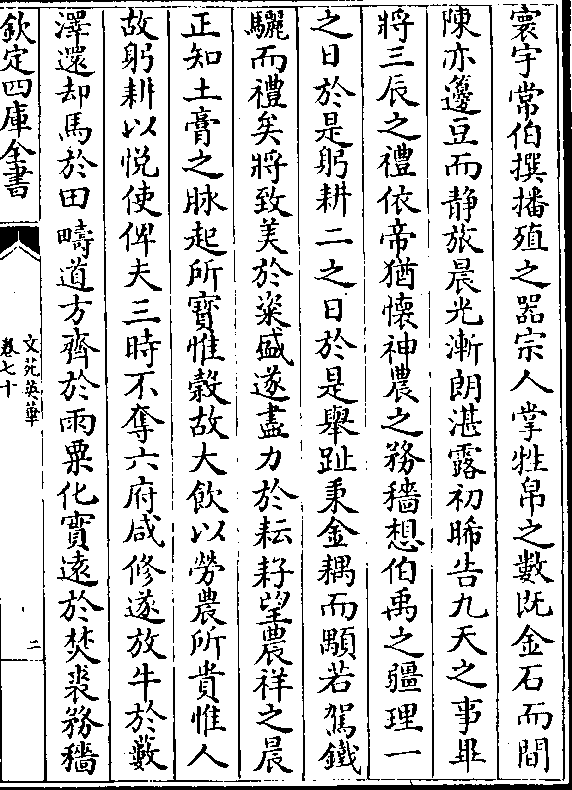 寰宇常伯撰播殖之器宗人掌牲帛之數既金石而間
陳亦籩豆而静旅晨光漸朗湛露初晞告九天之事畢
將三辰之禮依帝猶懷神農之務穡想伯禹之疆理一
之日於是躬耕二之日於是舉趾秉金耦而顒若駕鐵
驪而禮矣將致美於粢盛遂盡力於耘耔望農祥之晨
正知土膏之脉起所寳惟榖故大飲以勞農所貴惟人
故躬耕以悦使俾夫三時不奪六府咸修遂放牛於藪
澤還却馬於田疇道方齊於雨粟化實遠於焚裘務穡
欽定四庫全書
文苑英華
卷七十
二